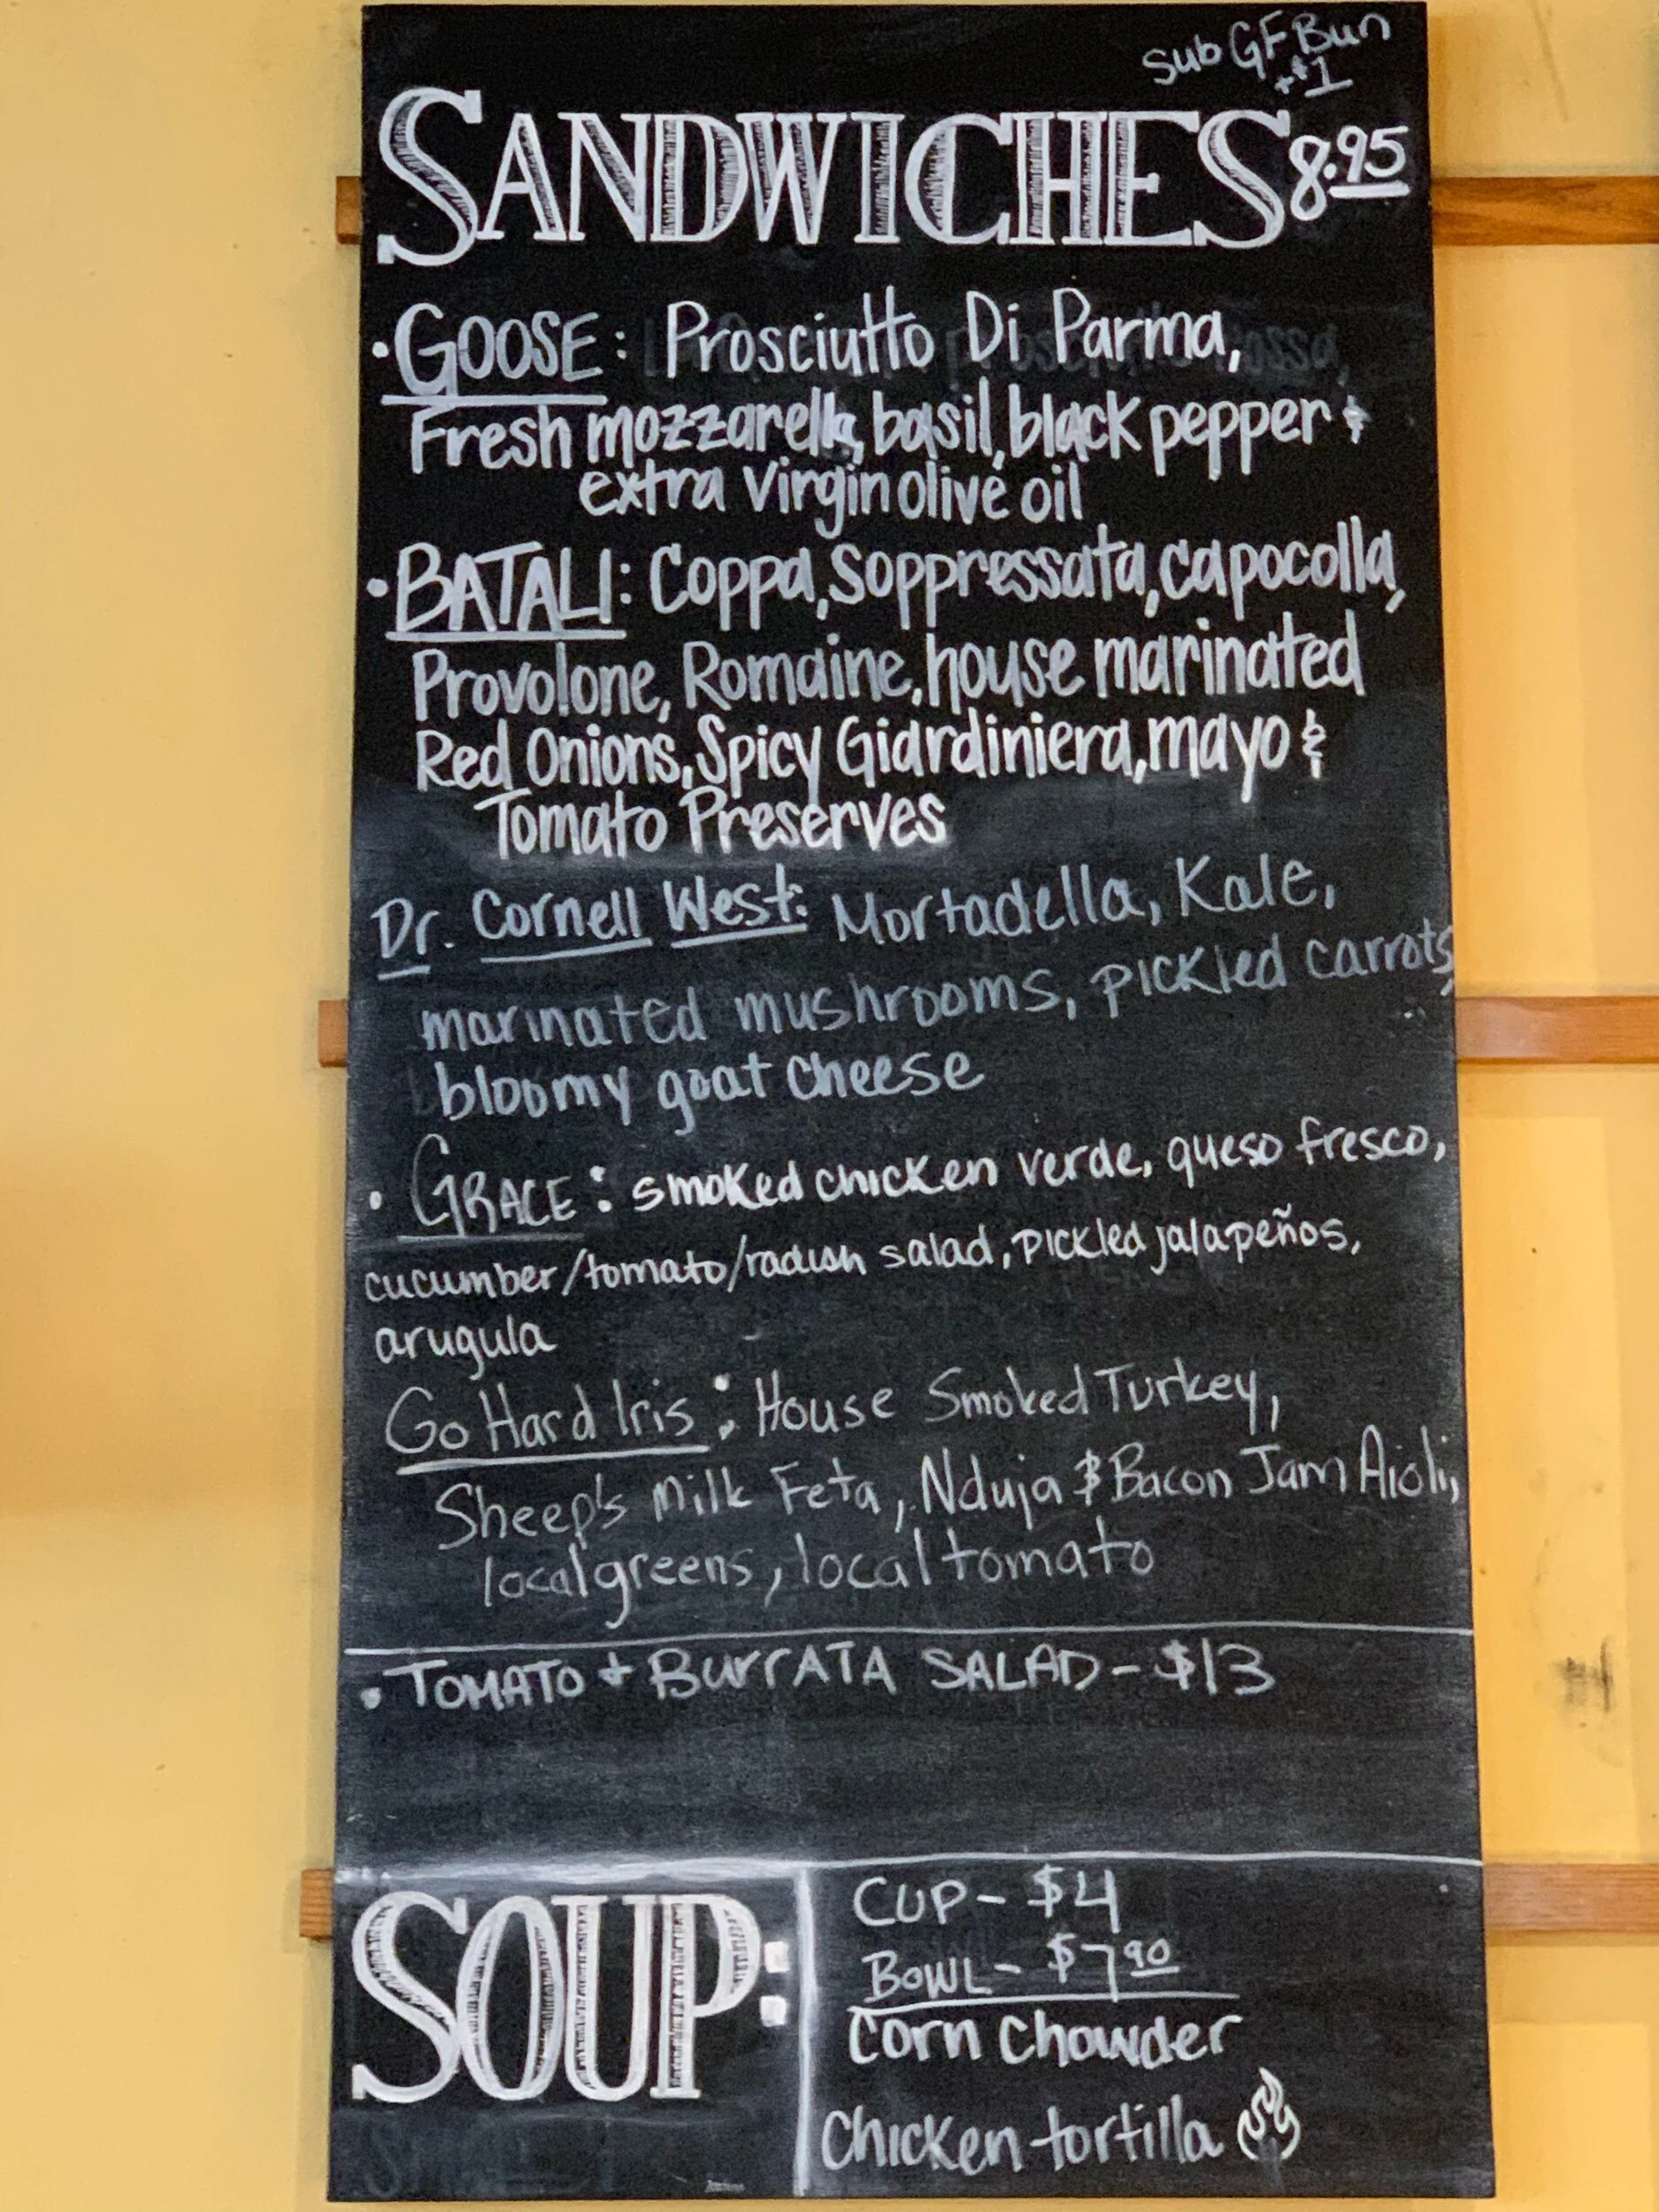 Sub GF Bun
+$1
SANDWICHES 8.95
• GOOSE: Prosciutto Di Parma,
Fresh mozzarella, basil, black pepper &
extra virgin olive oil
• BATALI: Coppa, Soppressata, capocolla,
Provolone, Romaine, house marinated
Red Onions, Spicy Giardiniera, mayo &
Tomato Preserves
Dr. Cornell West: Mortadella, Kale,
marinated mushrooms, pickled carrots,
bloomy goat cheese
• GRACE: smoked chicken verde, queso fresco,
cucumber/tomato/radish salad, pickled jalapeños,
arugula
Go Hard Iris: House Smoked Turkey,
Sheep's Milk Feta, Nduja & Bacon Jam Aioli,
local greens, local tomato
• TOMATO + BURRATA SALAD - $13
SOUP:
CUP - $4
BOWL - $7.90
Corn Chowder
Chicken tortilla